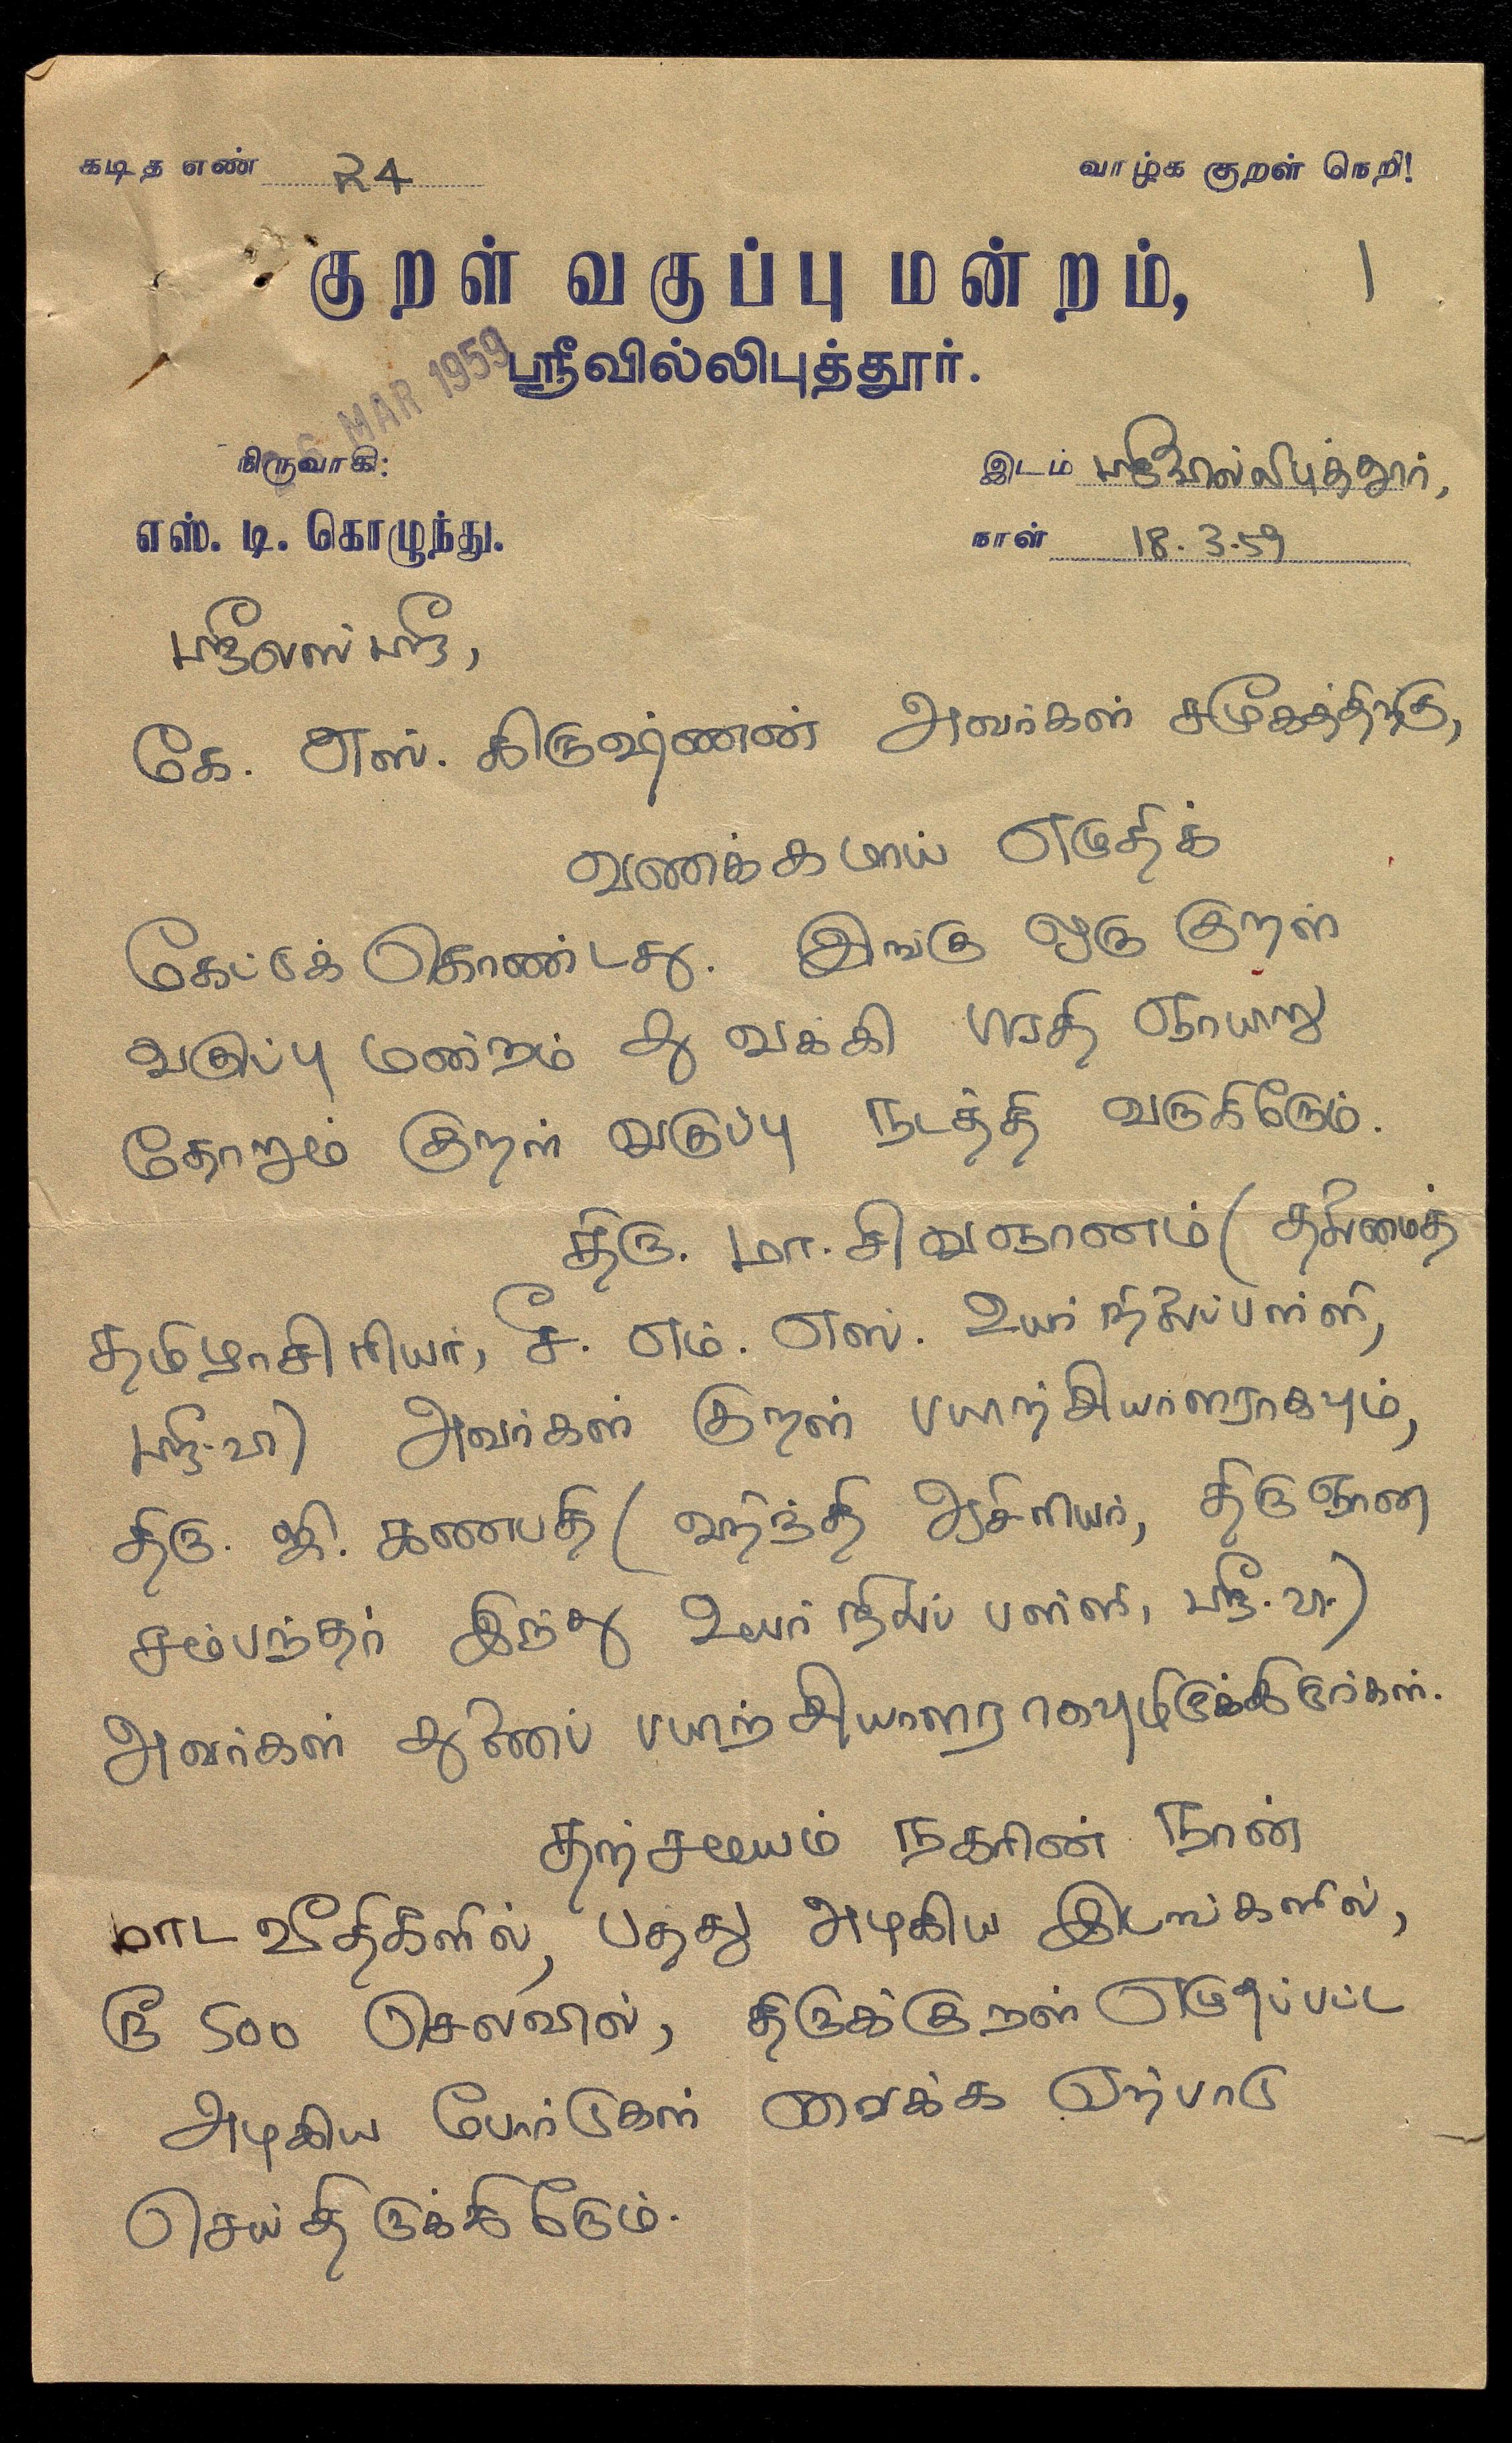 கடித எண் 24
வாழ்க குறள் நெறி!
குறள் வகுப்பு மன்றம்,
1
ஸ்ரீவில்லிபுத்தூர்.
MAR 1959
நிருவாகி:
எஸ். டி. கொழுந்து.
இடம் ஸ்ரீவில்லிபுத்தூர்,
நாள் 18.3.59
ஸ்ரீலஸ்ரீ,
கே. எஸ். கிருஷ்ணன் அவர்கள் சமூகத்திற்கு,
வணக்கமாய் எழுதிக்
கேட்டுக் கொண்டது. இங்கு ஒரு குறள்
வகுப்பு மன்றம் துவக்கி பிரதி ஞாயிறு
தோறும் குறள் வகுப்பு நடத்தி வருகிறோம்.
திரு. மா. சிவஞானம் (தலைமைத்
தமிழாசிரியர், சீ. எம். எஸ். உயர் நிலைப்பள்ளி,
ஸ்ரீ.வி) அவர்கள் குறள் பயிற்சியாளராகவும்,
திரு. ஜி. கணபதி (ஹிந்தி ஆசிரியர், திருஞான
சம்பந்தர் இந்து உயர் நிலைப் பள்ளி, ஸ்ரீ.வி.)
அவர்கள் துணைப் பயிற்சியாளராகவுமிருக்கிறார்கள்.
தற்சமயம் நகரின் நான்
மாட வீதிகளில், பத்து அழகிய இடங்களில்,
ரூ 500 செலவில், திருக்குறள் எழுதப்பட்ட
அழகிய போர்டுகள் வைக்க ஏற்பாடு
செய்திருக்கிறோம்.